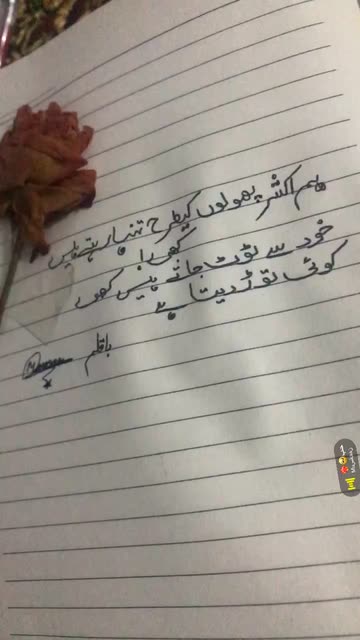 ہم اکثر پھولوں کیطرح تنہا رہتے ہیں
خود سے ٹوٹ جاتے ہیں کھبی
کوئی توڑ دیتا ہے
باقلم